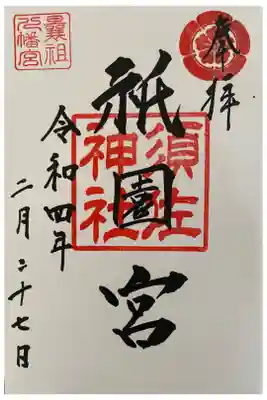 奉拝
祇園宮
須佐
神社
令和四年
二月二十七日
八幡宮